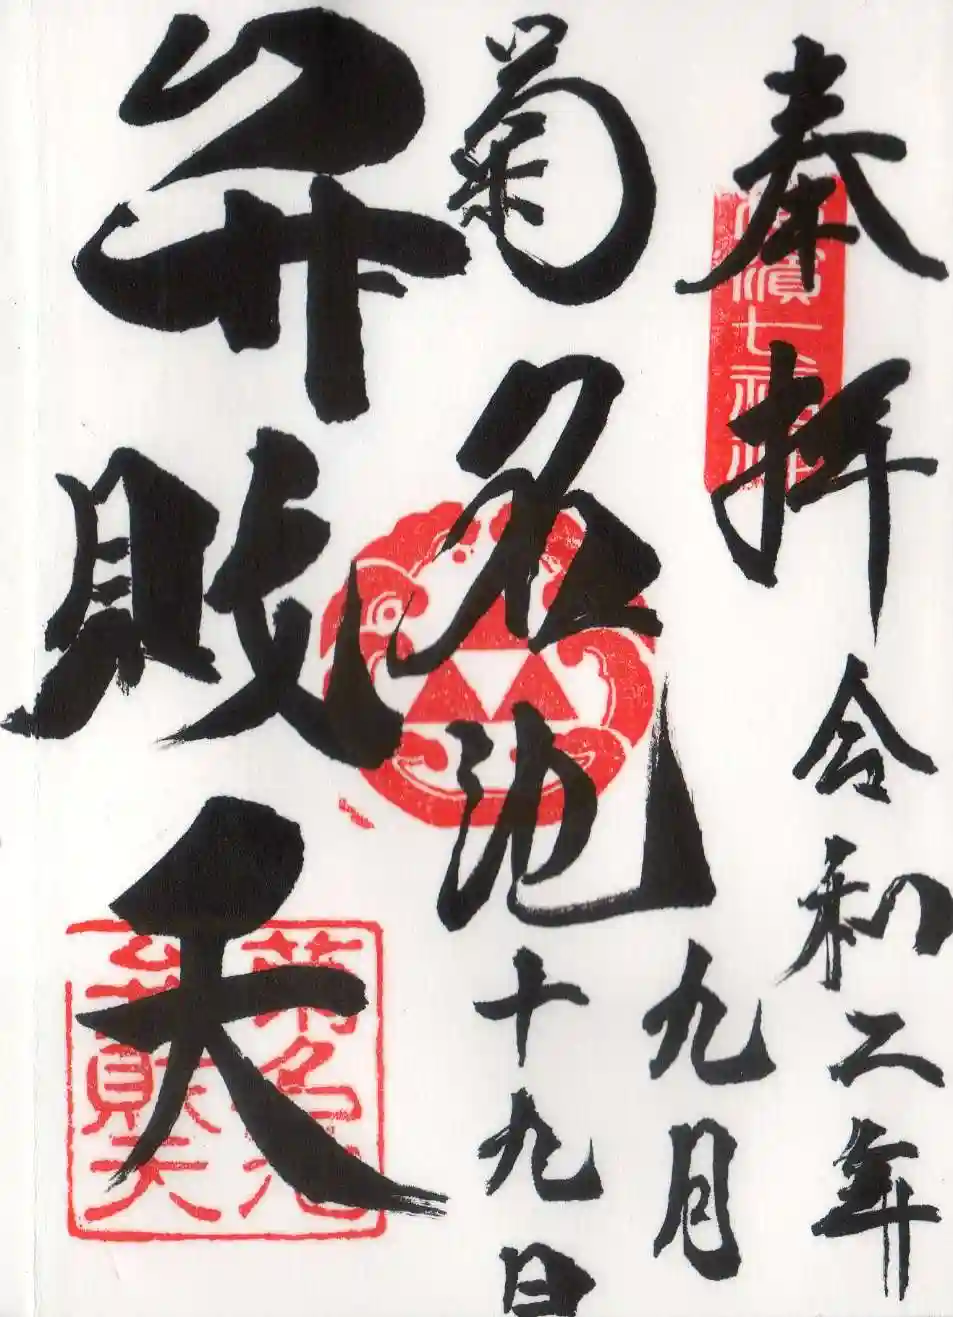 奉拝
令和二年
九月
十九日
菊名池
弁財天
横濱七福神
菊名池
弁財天